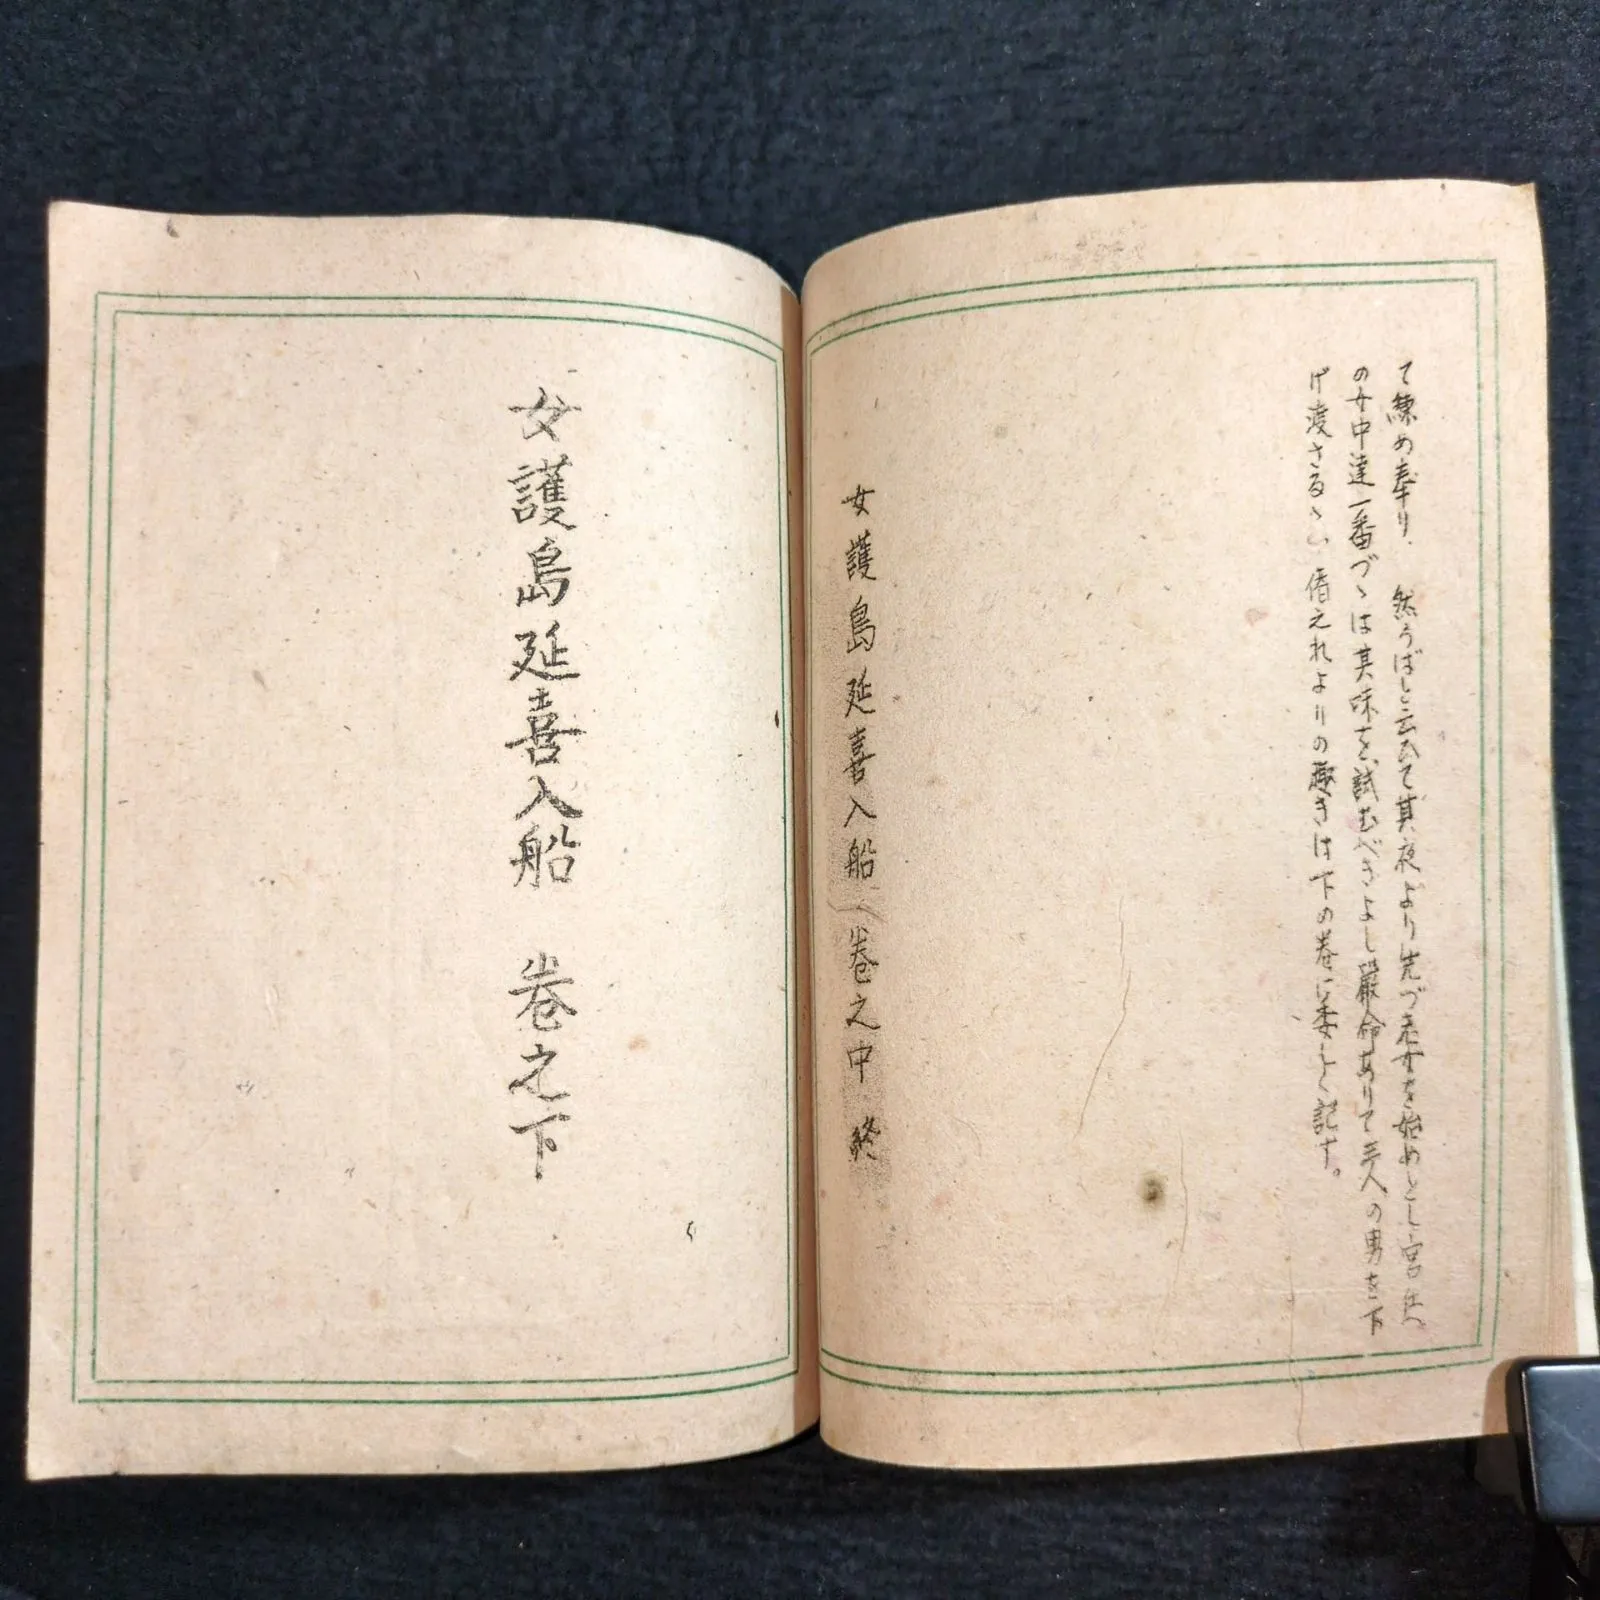 て諫め奉り、然らばと云ひて其夜より先づ老女を始めとし宮仕へ
の女中達一番づゝは其味を試むべきよし厳命ありて三人の男を下
げ渡さる、偖えれよりの趣きは下の巻に委しく記す。
女護島延喜入船(巻之中 終
女護島延喜入船 巻之下